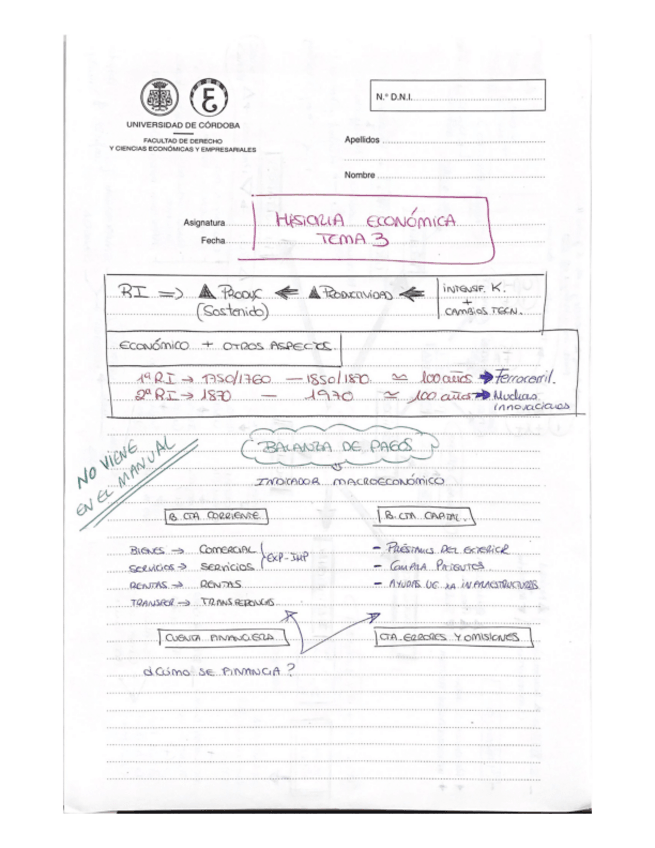 UNIVERSIDAD DE CÓRDOBA
FACULTAD DE DERECHO
Y CIENCIAS ECONÓMICAS Y EMPRESARIALES
N.º D.N.I.
Apellidos
Nombre
Asignatura HISTORIA ECONÓMICA
Fecha TEMA 3
RI => ▲ PRODUC ← ▲ PRODUCTIVIDAD ← INTENSIF. K.
(Sostenido) + CAMBIOS TECN.
ECONÓMICO + OTROS ASPECTOS
1ª RI → 1750/1760 — 1850/1870 ≃ 100 años → Ferrocarril.
2ª RI → 1870 — 1970 ≃ 100 años → Muchas innovaciones
NO VIENE
EN EL MANUAL
BALANZA DE PAGOS
INDICADOR MACROECONÓMICO
B. CTA CORRIENTE
B. CTA CAPITAL.
BIENES → COMERCIAL
SERVICIOS → SERVICIOS
EXP-IMP
RENTAS → RENTAS
TRANSFER → TRANSFERENCIAS
- PRÉSTAMOS DEL EXTERIOR
- COMPRA PATENTES
- AYUDAS UE xa INFRAESTRUCTURAS
CUENTA FINANCIERA
CTA. ERRORES Y OMISIONES
¿CÓMO SE FINANCIA?